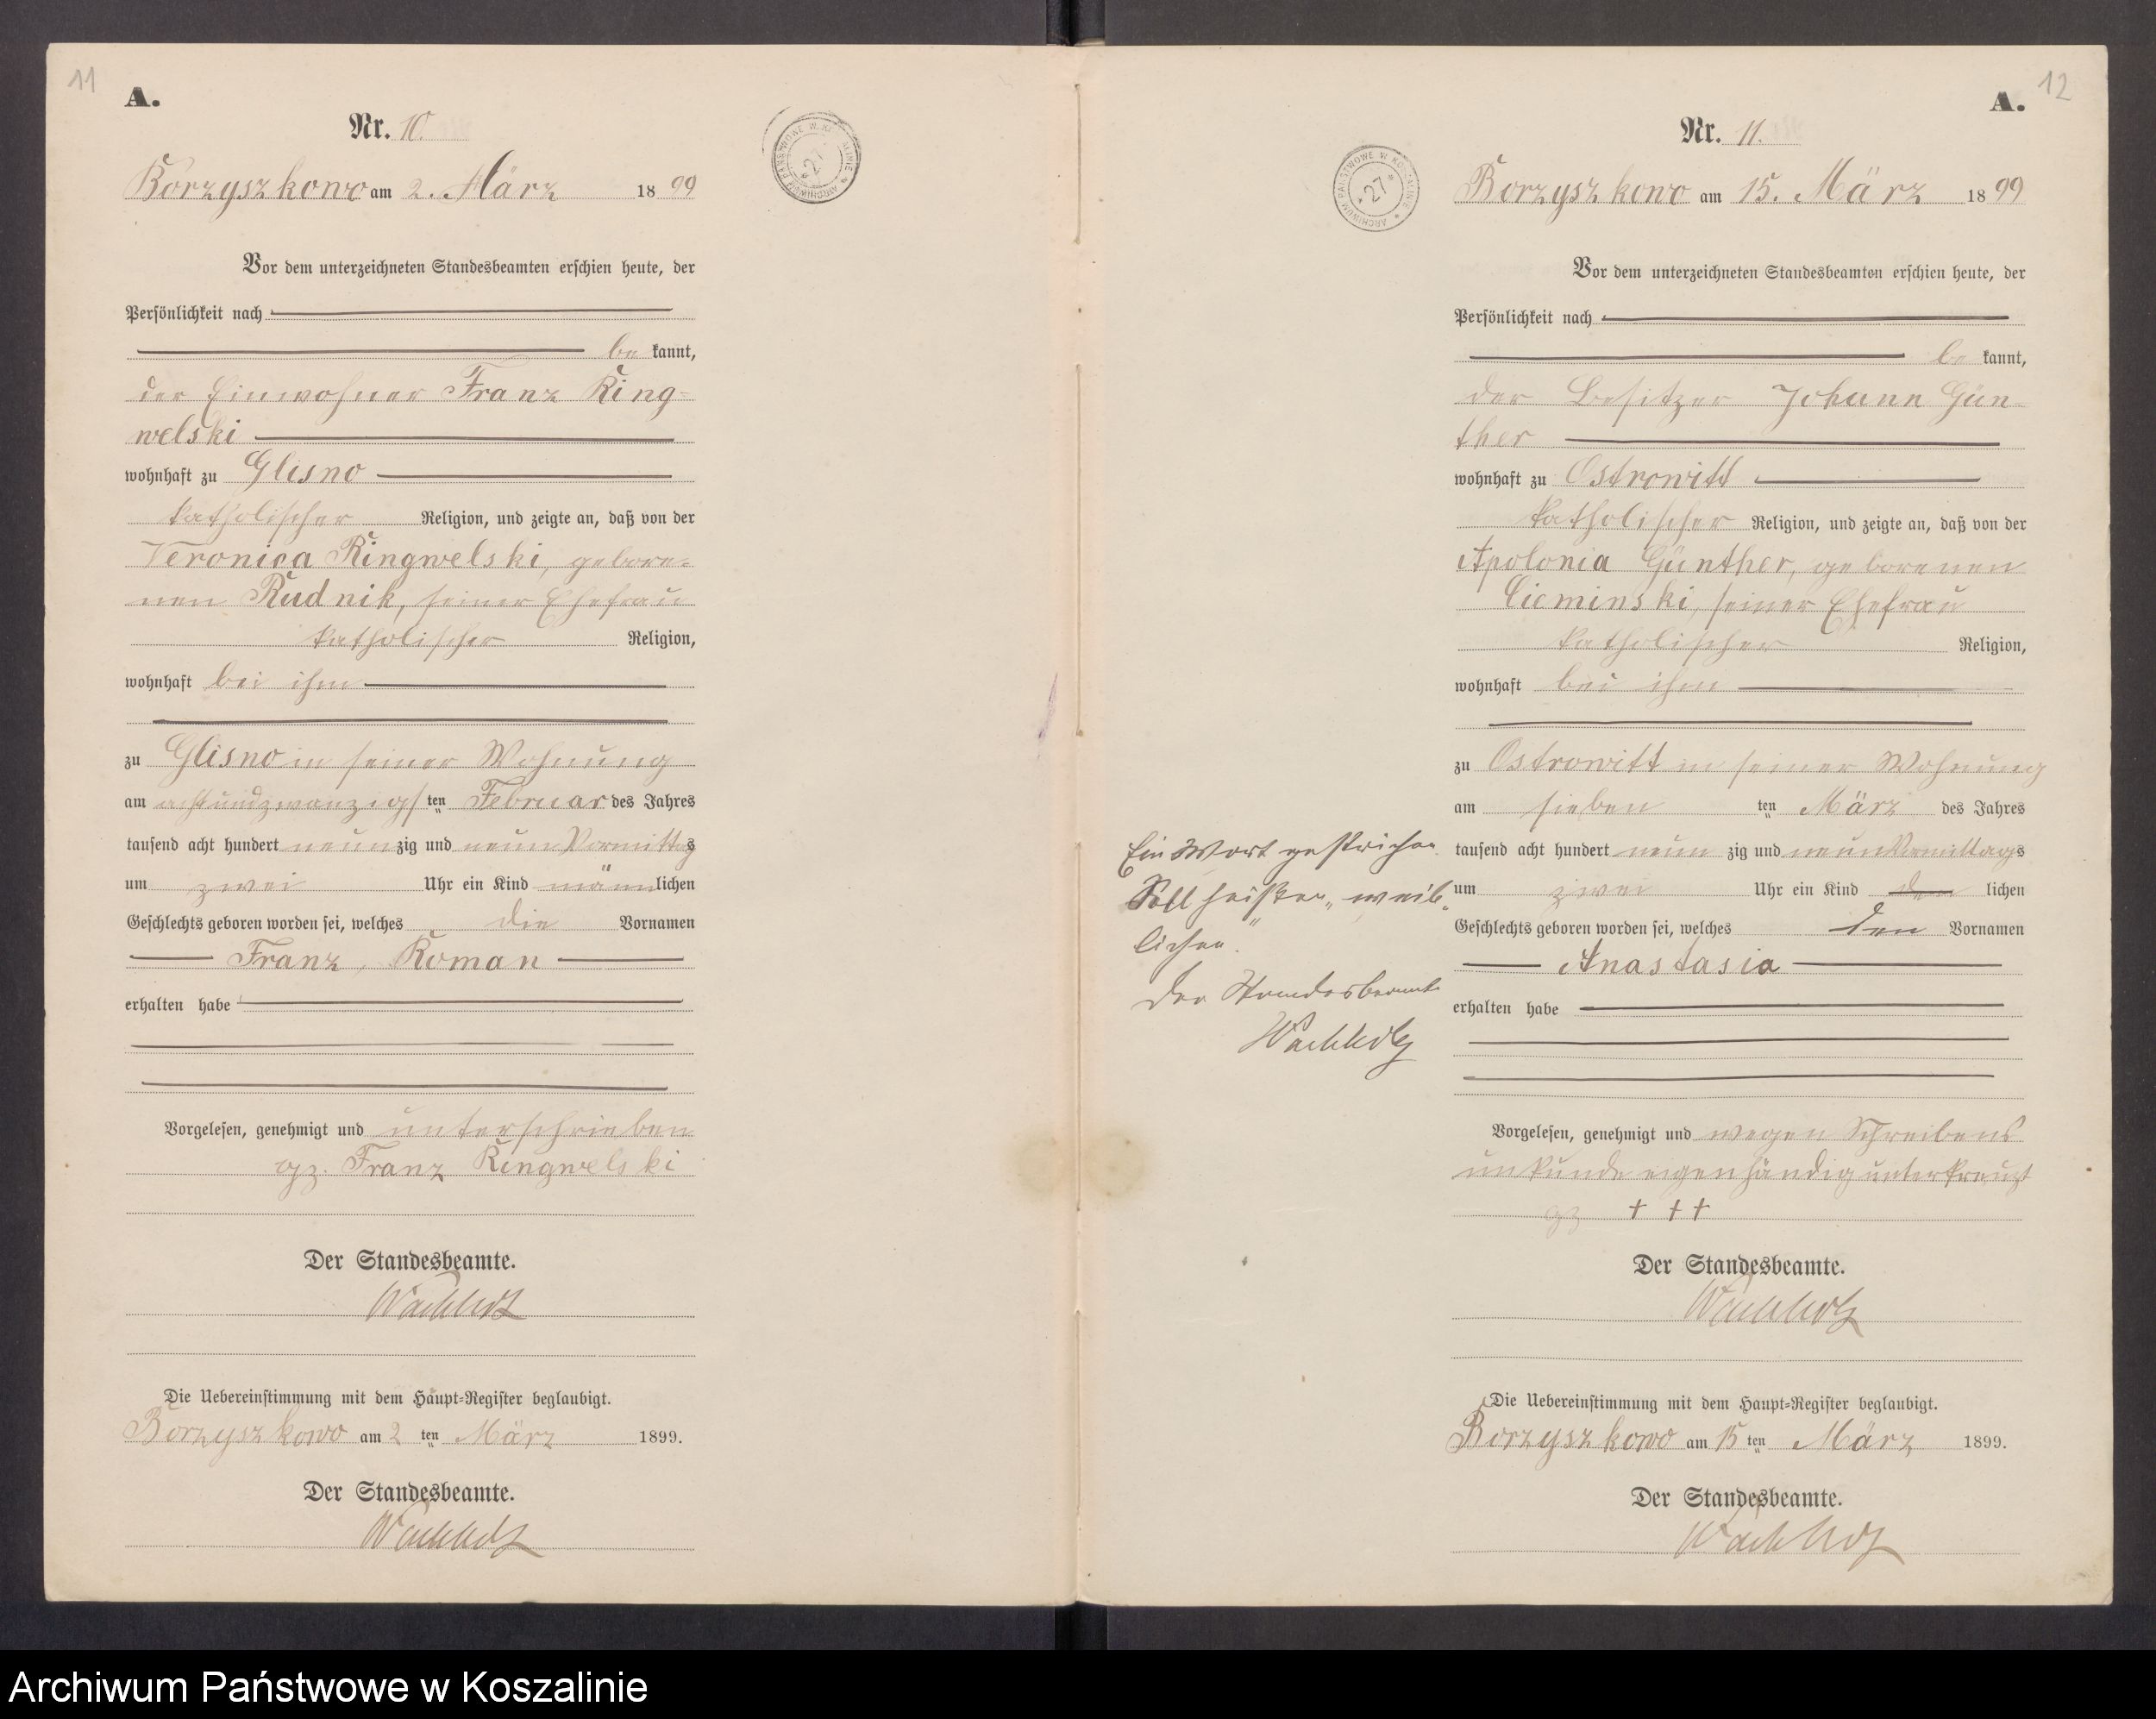 11
A.
Nr. 10.
Borzyszkowo am 2. März 1899
Vor dem unterzeichneten Standesbeamten erschien heute, der
Persönlichkeit nach
be kannt,
der Einwohner Franz Ring-
welski
wohnhaft zu Glisno
katholischer Religion, und zeigte an, daß von der
Veronica Ringwelski, gebore-
nen Rudnik, seiner Ehefrau
katholischer Religion,
wohnhaft bei ihm
zu Glisno in seiner Wohnung
am achtundzwanzigsten Februar des Jahres
tausend acht hundert neunzig und neun Vormittags
um zwei Uhr ein Kind männlichen
Geschlechts geboren worden sei, welches die Vornamen
Franz, Roman
erhalten habe
Vorgelesen, genehmigt und unterschrieben
gz. Franz Ringwelski
Der Standesbeamte.
Wachholz
Die Uebereinstimmung mit dem Haupt-Register beglaubigt.
Borzyszkowo am 2 ten März 1899.
Der Standesbeamte.
Wachholz
ARCHIWUM PAŃSTWOWE W KOSZALINIE
27
12
A.
Nr. 11.
ARCHIWUM PAŃSTWOWE W KOSZALINIE
27
Borzyszkowo am 15. März 1899
Vor dem unterzeichneten Standesbeamten erschien heute, der
Persönlichkeit nach
be kannt,
der Besitzer Johann Gün-
ther
wohnhaft zu Ostrowitt
katholischer Religion, und zeigte an, daß von der
Apolonia Günther, geborenen
Cieminski, seiner Ehefrau
katholischer Religion,
wohnhaft bei ihm
zu Ostrowitt in seiner Wohnung
am sieben ten März des Jahres
tausend acht hundert neun zig und neun Vormittags
um zwei Uhr ein Kind den lichen
Geschlechts geboren worden sei, welches den Vornamen
Anastasia
erhalten habe
Ein Wort gestrichen.
Soll heißen „weib-
lichen".
Der Standesbeamte
Wachholz
Vorgelesen, genehmigt und wegen Schreibens
unkunde eigenhändig unterkreuzt
gz + + +
Der Standesbeamte.
Wachholz
Die Uebereinstimmung mit dem Haupt-Register beglaubigt.
Borzyszkowo am 15 ten März 1899.
Der Standesbeamte.
Wachholz
Archiwum Państwowe w Koszalinie